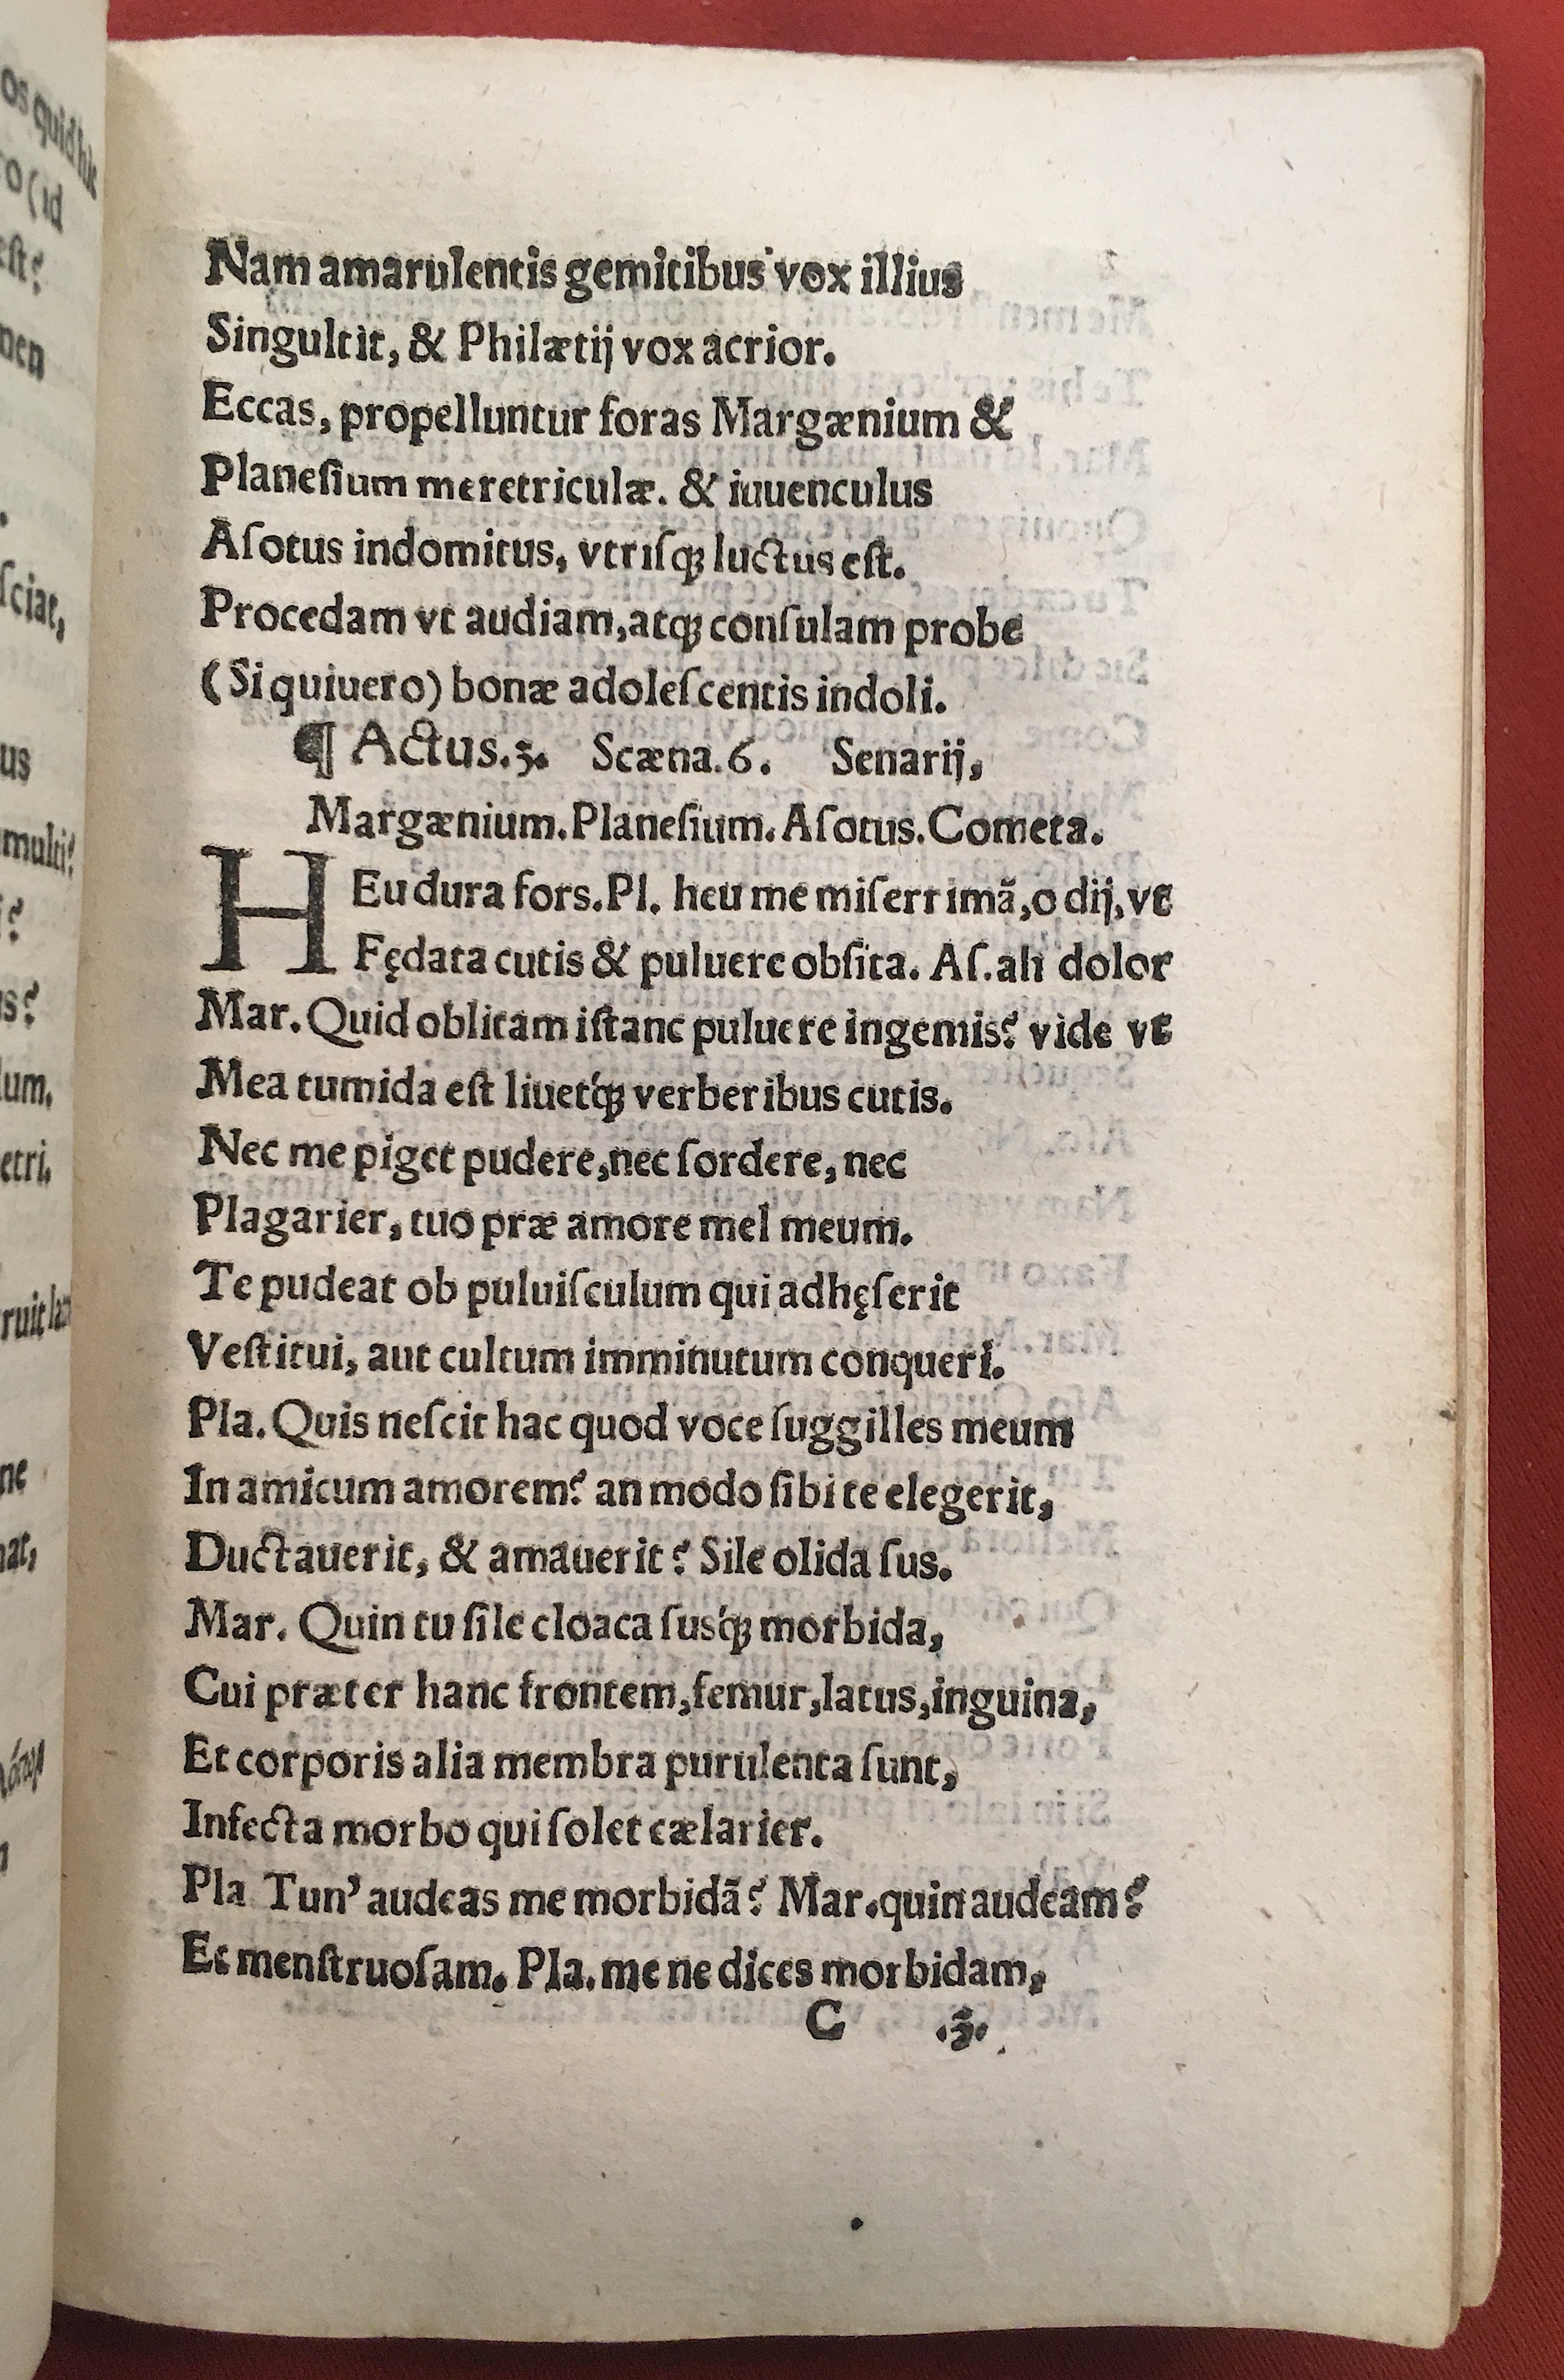 Nam amarulentis gemitibus vox illius
Singultit, & Philætij vox acrior.
Eccas, propelluntur foras Margænium &
Planeſium meretriculæ. & iuuenculus
Aſotus indomitus, vtriſqꝫ luctus eſt.
Procedam vt audiam,atqꝫ conſulam probe
(Si quiuero) bonæ adoleſcentis indoli.
¶ Actus.3. Scæna.6. Senarij,
Margænium.Planeſium.Aſotus.Cometa.
HEu dura fors.Pl. heu me miſerrimã,o dij,vt
Fędata cutis & puluere obſita. Aſ.ah dolor
Mar. Quid oblitam iſtanc puluere ingemis? vide vt
Mea tumida eſt liuet́qꝫ verberibus cutis.
Nec me piget pudere,nec ſordere, nec
Plagarier, tuo præ amore mel meum.
Te pudeat ob puluiſculum qui adhęſerit
Veſtitui, aut cultum imminutum conqueri.
Pla. Quis neſcit hac quod voce ſuggilles meum
In amicum amorem? an modo ſibi te elegerit,
Ductauerit, & amauerit? Sile olida ſus.
Mar. Quin tu ſile cloaca ſuś́qꝫ morbida,
Cui præter hanc frontem,femur,latus,inguina,
Et corporis alia membra purulenta ſunt,
Infecta morbo qui ſolet cælarier.
Pla Tun' audeas me morbidã? Mar.quin audeam?
Et menſtruoſam. Pla.me ne dices morbidam,
C .3.
os quid hic
ro (id
eſt?
men
ſciat,
us
multi?
lum.
etri.
ne